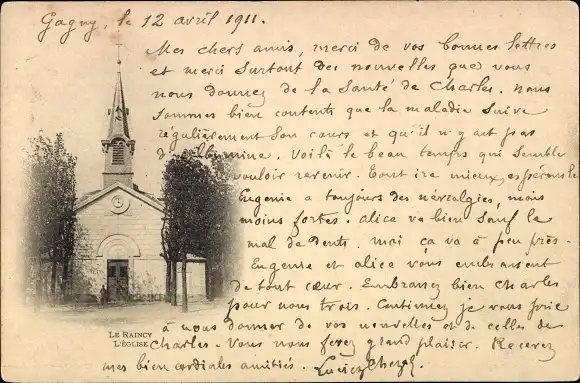 Gagny, le 12 avril 1911.
Mes chers amis, merci de vos bonnes lettres
et merci surtout des nouvelles que vous
nous donnez de la santé de Charles. Nous
sommes bien contents que la maladie suive
régulièrement son cours et qu'il n'y ait pas
d'albumine. Voilà le beau temps qui semble
vouloir revenir. Tout ira mieux, espérons le
Eugénie a toujours des névralgies, mais
moins fortes. Alice va bien sauf le
mal de dents. Moi ça va à peu près.
Eugénie et Alice vous embrassent
de tout cœur. Embrassez bien Charles
pour nous trois. Continuez je vous prie
à nous donner de vos nouvelles et de celles de
Charles. Vous nous ferez grand plaisir. Recevez
mes bien cordiales amitiés.
LE RAINCY
L'ÉGLISE